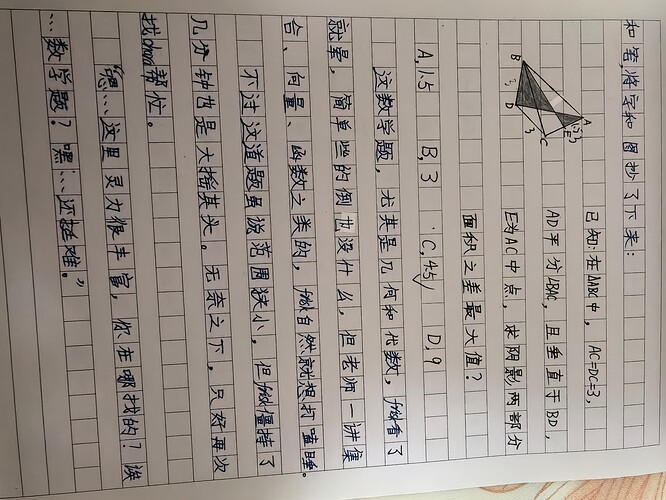 和笔,将字和图抄了下来:
A
E
B
D
C
3
已知:在△ABC中, AC=DC=3,
AD平分∠BAC,且垂直于BD,
E为AC中点,求阴影两部分
面积之差最大值?
A,1.5 B,3 C,4.5✓ D,9
这数学题,尤其是几何和代数,看了
就晕,简单些的倒也没什么,但老师一讲集
合、向量、函数之类的,自然就想打瞌睡。
不过这道题虽说范围狭小,但僵持了
几分钟也是大摇其头。无奈之下,只好再次
找帮忙。
“嗯…这里灵力很丰富,你在哪找的?诶
…数学题?嘿…还挺难。”